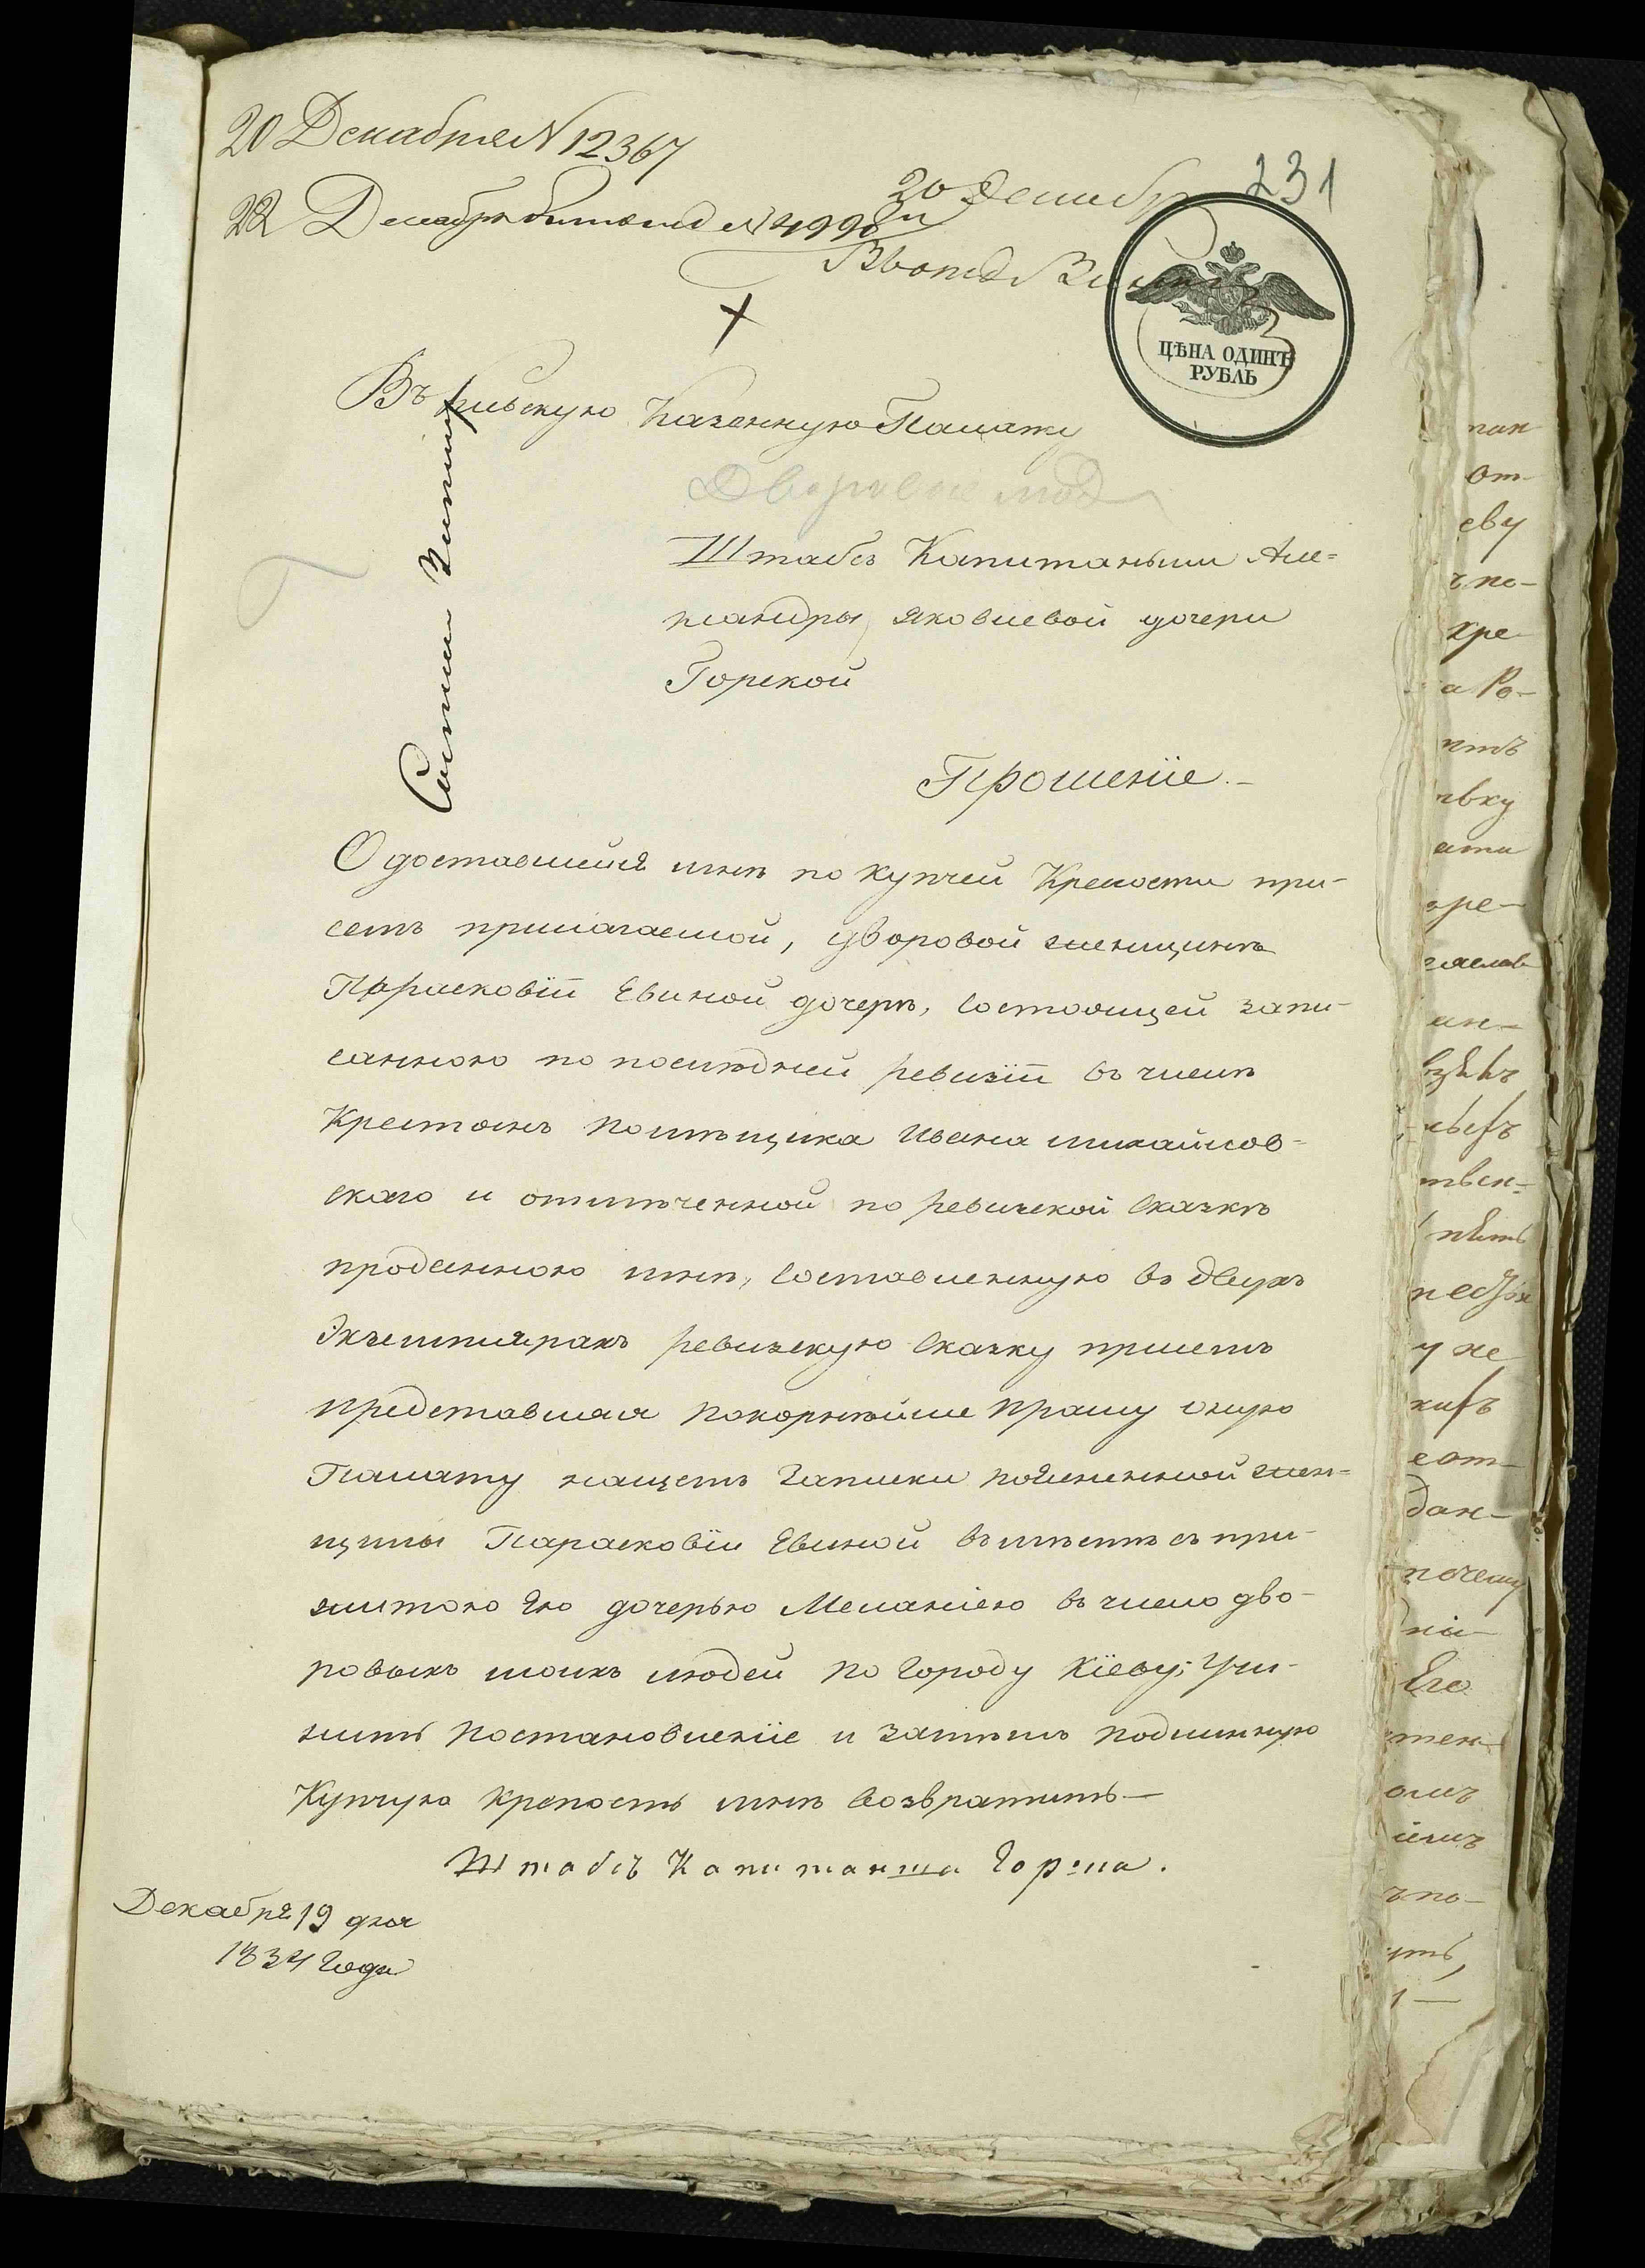 20 Декабря N 12367
231
22 Декабря N 4990
20 Декабр
ЦѢНА ОДИНЪ
РУБЛЬ
Въ Кіевскую Казенную Палату
Дворовые люд
Штабсъ Капитаньши Але=
ксандры Яковлевой дочери
Горской
Прошеніе.-
О доставшейся мнѣ по купчей Крепости при-
семъ прилагаемой, дворовой женщинѣ
Парасковіи Евиной дочерѣ, состоящей запи-
санною по последней ревизіи въ числѣ
Крестьянъ помѣщика Ивана Михайлов-
скаго и отмѣченной по ревизской сказкѣ
проданною мнѣ, составленную въ двухъ
Экземплярахъ ревизскую сказку присемъ
представляя покорнѣйше прашу оную
Палату нащетъ записки поясненной жен-
щины Парасковіи Евиной вместѣ съ при-
житою Ею дочерью Меланіею въ число дво-
ровыхъ моихъ людей по Городу Кіеву; Учи-
нить постановленіе и затѣмъ подлинную
Купчую крепость мнѣ возвратить—
Штабсъ Капитанша Горска.
Декабря 19 дня
1834 Года